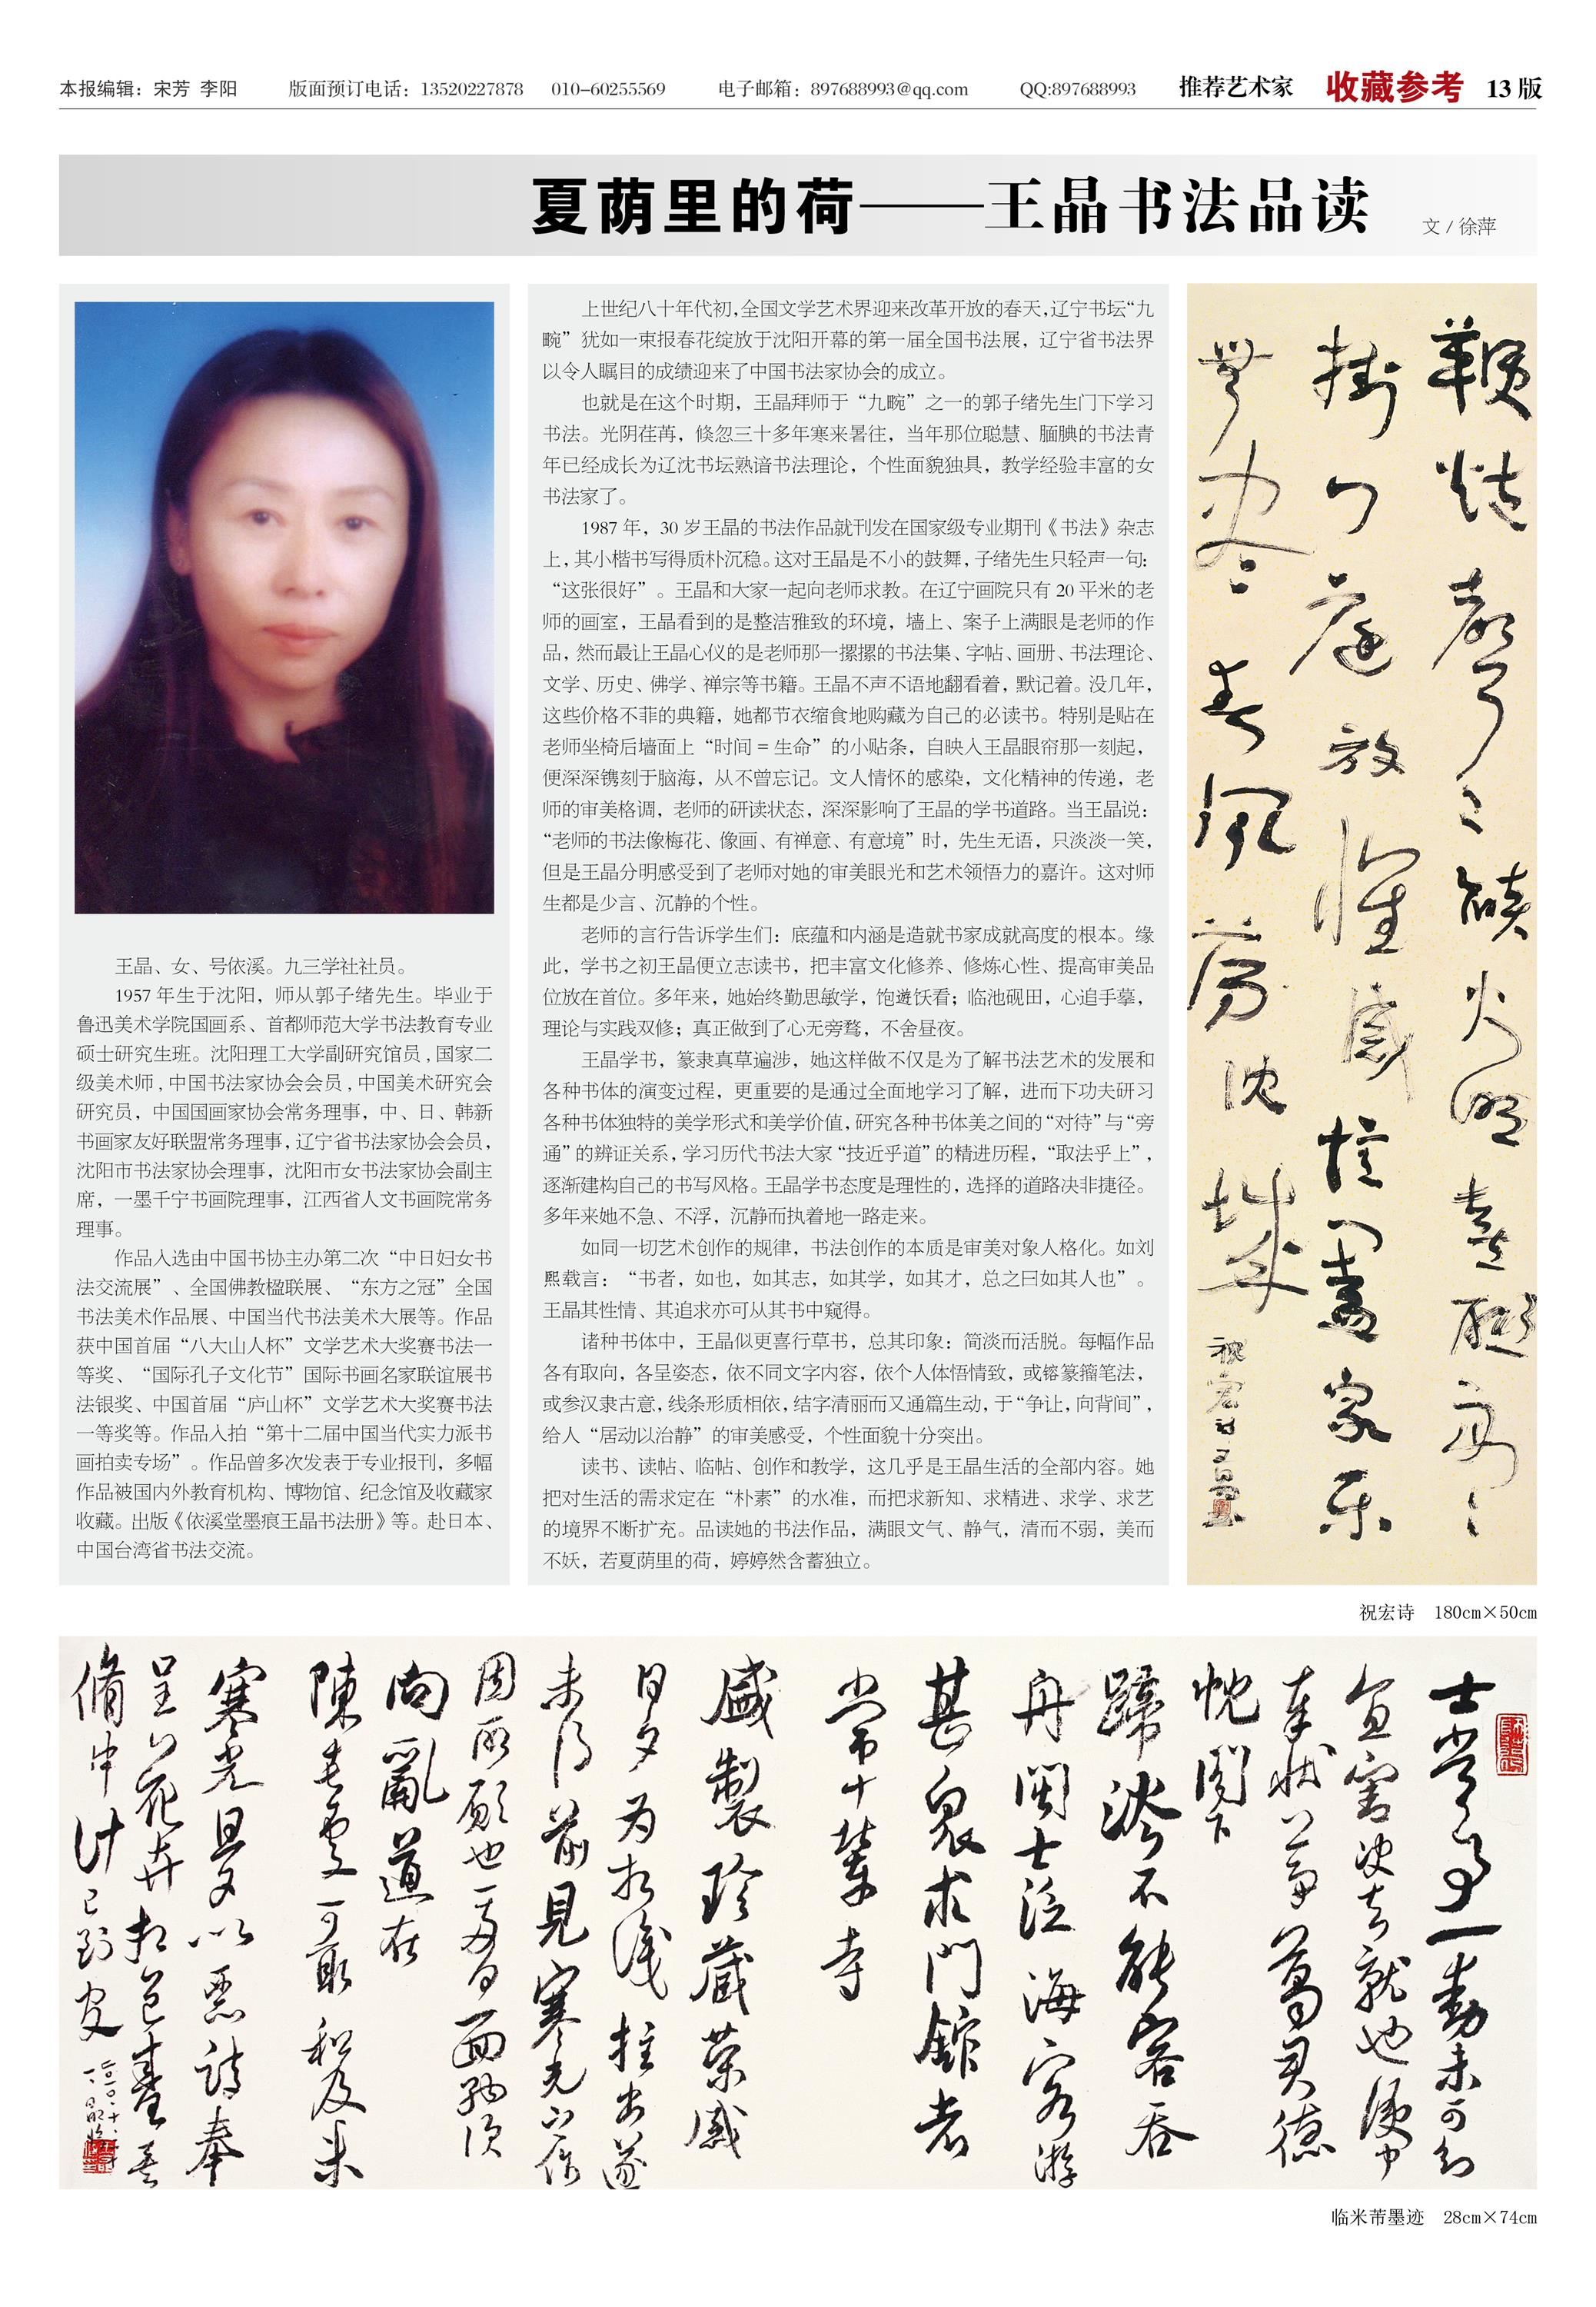 本报编辑：宋芳 李阳 版面预订电话：13520227878 010-60255569 电子邮箱：897688993@qq.com QQ:897688993 推荐艺术家 收藏参考 13 版
夏荫里的荷——王晶书法品读 文 / 徐萍
王晶、女、号依溪。九三学社社员。
1957 年生于沈阳，师从郭子绪先生。毕业于
鲁迅美术学院国画系、首都师范大学书法教育专业
硕士研究生班。沈阳理工大学副研究馆员，国家二
级美术师，中国书法家协会会员，中国美术研究会
研究员，中国国画家协会常务理事，中、日、韩新
书画家友好联盟常务理事，辽宁省书法家协会会员，
沈阳市书法家协会理事，沈阳市女书法家协会副主
席，一墨千宁书画院理事，江西省人文书画院常务
理事。
作品入选由中国书协主办第二次“中日妇女书
法交流展”、全国佛教楹联展、“东方之冠”全国
书法美术作品展、中国当代书法美术大展等。作品
获中国首届“八大山人杯”文学艺术大奖赛书法一
等奖、“国际孔子文化节”国际书画名家联谊展书
法银奖、中国首届“庐山杯”文学艺术大奖赛书法
一等奖等。作品入拍“第十二届中国当代实力派书
画拍卖专场”。作品曾多次发表于专业报刊，多幅
作品被国内外教育机构、博物馆、纪念馆及收藏家
收藏。出版《依溪堂墨痕王晶书法册》等。赴日本、
中国台湾省书法交流。
上世纪八十年代初，全国文学艺术界迎来改革开放的春天，辽宁书坛“九
畹”犹如一束报春花绽放于沈阳开幕的第一届全国书法展，辽宁省书法界
以令人瞩目的成绩迎来了中国书法家协会的成立。
也就是在这个时期，王晶拜师于“九畹”之一的郭子绪先生门下学习
书法。光阴荏苒，倏忽三十多年寒来暑往，当年那位聪慧、腼腆的书法青
年已经成长为辽沈书坛熟谙书法理论，个性面貌独具，教学经验丰富的女
书法家了。
1987 年，30 岁王晶的书法作品就刊发在国家级专业期刊《书法》杂志
上，其小楷书写得质朴沉稳。这对王晶是不小的鼓舞，子绪先生只轻声一句：
“这张很好”。王晶和大家一起向老师求教。在辽宁画院只有 20 平米的老
师的画室，王晶看到的是整洁雅致的环境，墙上、案子上满眼是老师的作
品，然而最让王晶心仪的是老师那一摞摞的书法集、字帖、画册、书法理论、
文学、历史、佛学、禅宗等书籍。王晶不声不语地翻看着，默记着。没几年，
这些价格不菲的典籍，她都节衣缩食地购藏为自己的必读书。特别是贴在
老师坐椅后墙面上“时间 = 生命”的小贴条，自映入王晶眼帘那一刻起，
便深深镌刻于脑海，从不曾忘记。文人情怀的感染，文化精神的传递，老
师的审美格调，老师的研读状态，深深影响了王晶的学书道路。当王晶说：
“老师的书法像梅花、像画、有禅意、有意境”时，先生无语，只淡淡一笑，
但是王晶分明感受到了老师对她的审美眼光和艺术领悟力的嘉许。这对师
生都是少言、沉静的个性。
老师的言行告诉学生们：底蕴和内涵是造就书家成就高度的根本。缘
此，学书之初王晶便立志读书，把丰富文化修养、修炼心性、提高审美品
位放在首位。多年来，她始终勤思敏学，饱遊饫看；临池砚田，心追手摹，
理论与实践双修；真正做到了心无旁骛，不舍昼夜。
王晶学书，篆隶真草遍涉，她这样做不仅是为了解书法艺术的发展和
各种书体的演变过程，更重要的是通过全面地学习了解，进而下功夫研习
各种书体独特的美学形式和美学价值，研究各种书体美之间的“对待”与“旁
通”的辨证关系，学习历代书法大家“技近乎道”的精进历程，“取法乎上”，
逐渐建构自己的书写风格。王晶学书态度是理性的，选择的道路决非捷径。
多年来她不急、不浮，沉静而执着地一路走来。
如同一切艺术创作的规律，书法创作的本质是审美对象人格化。如刘
熙载言：“书者，如也，如其志，如其学，如其才，总之曰如其人也”。
王晶其性情、其追求亦可从其书中窥得。
诸种书体中，王晶似更喜行草书，总其印象：简淡而活脱。每幅作品
各有取向，各呈姿态，依不同文字内容，依个人体悟情致，或镕篆籀笔法，
或参汉隶古意，线条形质相依，结字清丽而又通篇生动，于“争让，向背间”，
给人“居动以治静”的审美感受，个性面貌十分突出。
读书、读帖、临帖、创作和教学，这几乎是王晶生活的全部内容。她
把对生活的需求定在“朴素”的水准，而把求新知、求精进、求学、求艺
的境界不断扩充。品读她的书法作品，满眼文气、静气，清而不弱，美而
不妖，若夏荫里的荷，婷婷然含蓄独立。
祝宏诗 180cm×50cm
舟閩士泛海客游
甚眾求門館者
常十輩寺
盛製珍藏榮感
日夕为相識拄出遂
未得前見寒光之作
固所願也一两日面納次
向亂道在
陳老处可取秤及未
寒光旦夕以惡詩奉
呈
脩中計
临米芾墨迹 28cm×74cm